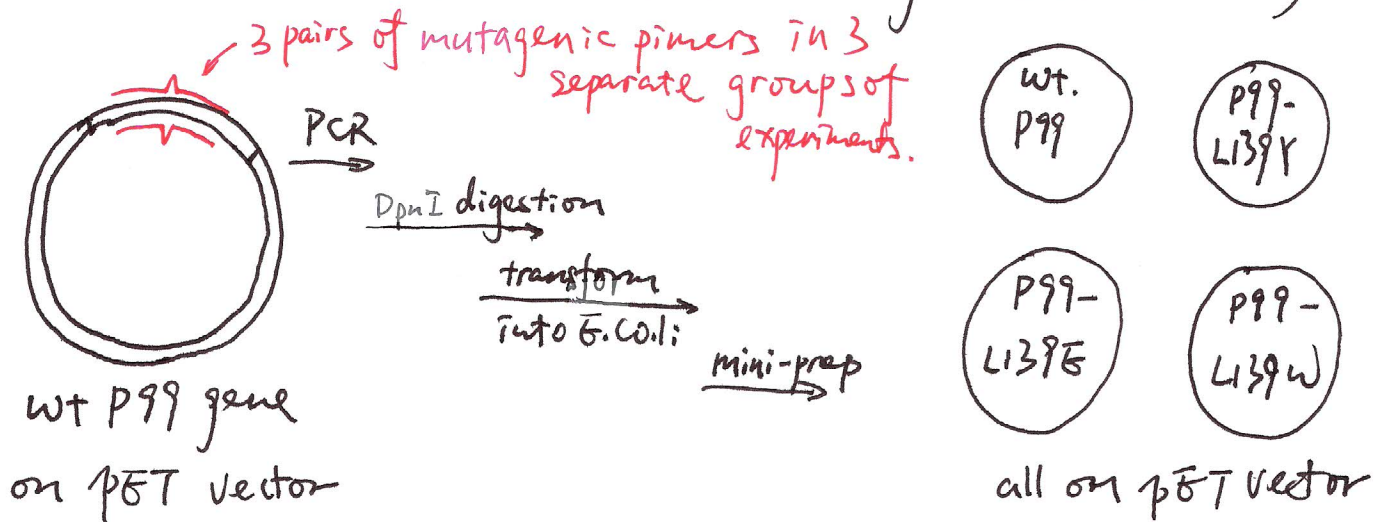 3 pairs of mutagenic pimers in 3
separate groups of
experiments.
PCR
DpnI digestion
transform
into E.Coli
mini-prep
wt P99 gene
on pET vector
wt.
P99
P99-
L139Y
P99-
L139E
P99-
L139W
all on pET vector